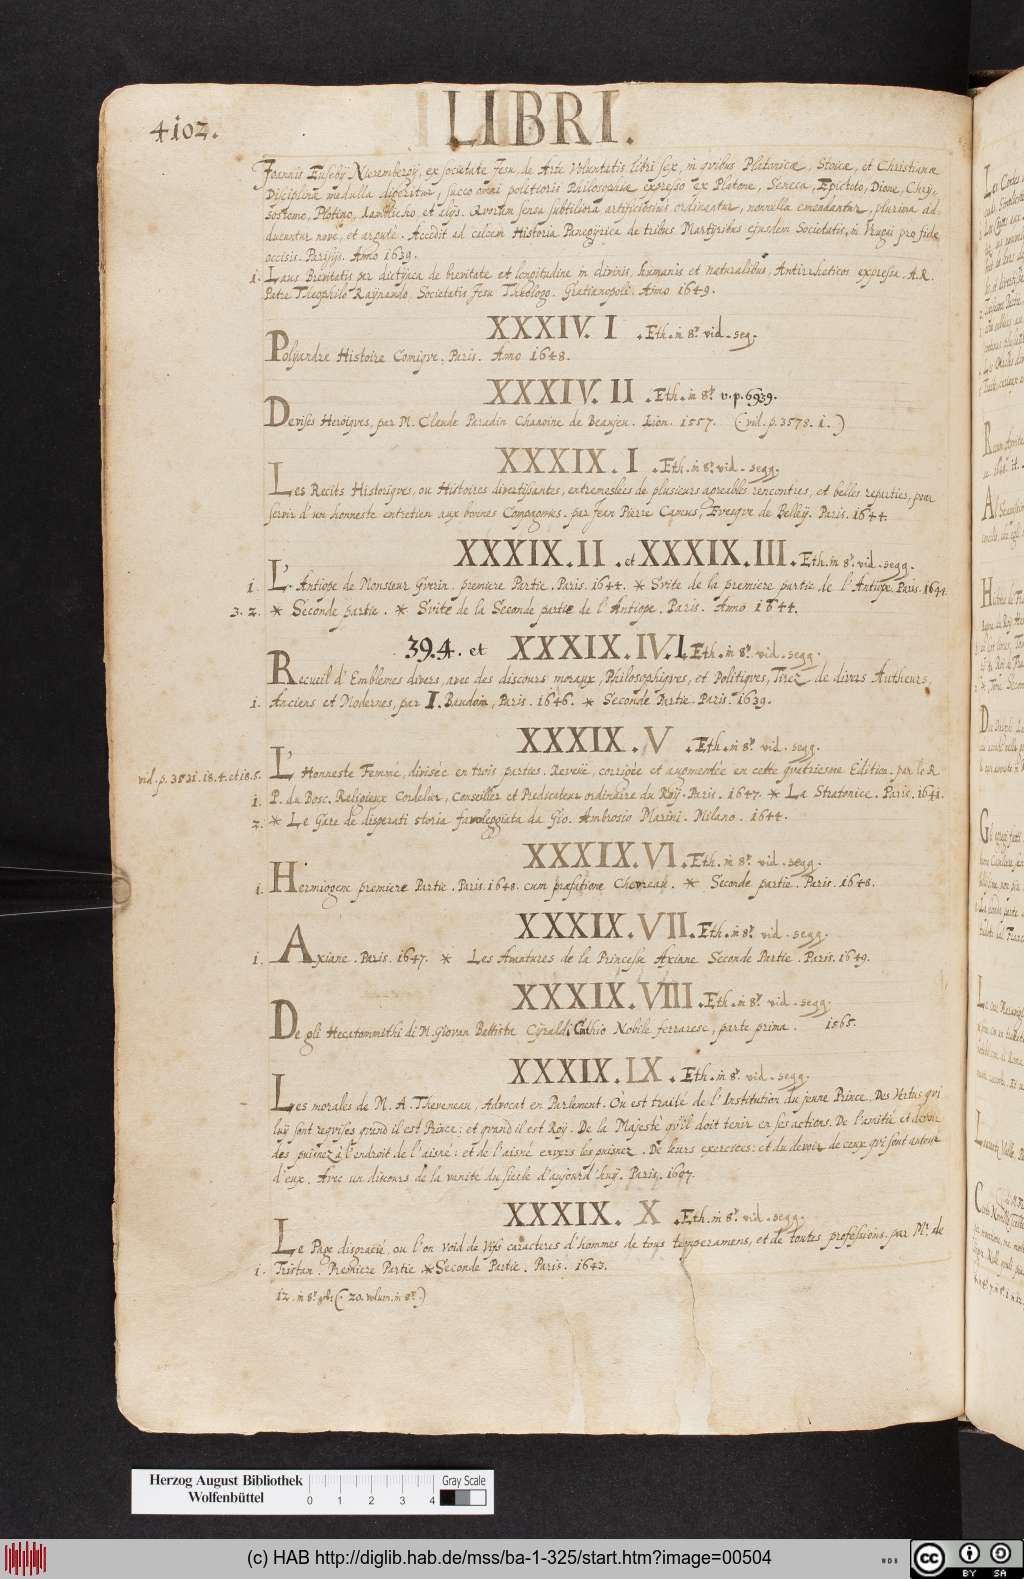 4102.
LIBRI.
Joannis Eusebÿ Nurembergÿ, ex societate Jesu, de Arte Voluntatis libri sex, in quibus Platonicæ, Stoicæ, et Christianæ
Disciplinæ medulla digeritur, succo omni politioris Philosophiæ expresso ex Platone, Seneca, Epicteto, Dione, Chrÿ-
sostomo, Plotino, Iamblicho, et alÿs. Quorum sensa subtiliora artificiosius ordinantur, nonnulla emendantur, plurima ad-
ducuntur nove, et argute. Accedit ad calcem Historia Panegÿrica de tribus Martÿribus ejusdem Societatis, in Vrugai pro fide
occisis. Parisÿs. Anno 1639.
1. Laus Brevitatis per dictÿnca de brevitate et longitudine in divinis, humanis et naturalibus, Antirrheticos expressa. A. R.
Patre Theophilo Raÿnaudo, Societatis Jesu Theologo. Gratianopoli. Anno 1649.
XXXIV. I . Eth. in 8º. vid. seg.
Polÿandre Histoire Comique. Paris. Anno 1648.
XXXIV. II . Eth. in 8º. v. p. 6939.
Devises Heroïques, par M. Claude Paradin Chanoine de Beaujeu. Lion. 1557. (: vid. p. 3578. 1. :)
XXXIX. I . Eth. in 8º. vid. segg.
Les Recits Historiques, ou Histoires divertissantes, entremeslees de plusieurs agreables rencontres, et belles reparties, pour
servir d'un honneste entretien aux bonnes Compagnies. par Jean Pierre Camus, Evesque de Belleÿ. Paris. 1644.
XXXIX. II . et XXXIX. III . Eth. in 8º. vid. segg.
1. L'Antiope de Monsieur Guerin. premiere Partie. Paris. 1644. * Suite de la premiere partie de l'Antiope. Paris. 1644.
3. 2. * Seconde partie. * Suite de la Seconde partie de l'Antiope. Paris. Anno 1644.
39.4. et XXXIX. IV. 1. Eth. in 8º. vid. segg.
Recueil d'Emblemes divers, avec des discours moraux, Philosophiques, et Politiques, Tirez de divers Autheurs,
1. Anciens et Modernes, par I. Baudoin, Paris. 1646. * Seconde Partie. Paris. 1639.
XXXIX. V . Eth. in 8º. vid. segg.
vid. p. 3831. 18. 4. et 18. 5. L'Honneste Femme, divisée en trois parties. Reveüe, corrigée et augmentée en cette quatriesme Edition. par le R.
1. P. du Bosc, Religieux Cordelier, Conseiller et Predicateur ordinaire du Roÿ. Paris. 1647. * La Stratonice. Paris. 1641.
2. * Le Gare de disperati storia favoleggiata da Gio. Ambrosio Marini. Milano. 1644.
XXXIX. VI. Eth. in 8º. vid. segg.
1. Hermiogene premiere Partie. Paris. 1648. cum præfatione Chevreau. * Seconde partie. Paris. 1648.
XXXIX. VII. Eth. in 8º. vid. segg.
1. Axiane. Paris. 1647. * Les Avantures de la Princesse Axiane Seconde Partie. Paris. 1649.
XXXIX. VIII . Eth. in 8º. vid. segg.
De gli Hecatommithi di M. Giovan Battista Cÿraldi Cinthio Nobile ferrarese, parte prima. 1565.
XXXIX. IX . Eth. in 8º. vid. segg.
Les morales de M. A. Theveneau, Advocat en Parlement. Où est traité de l'Institution du jeune Prince. Des Vertus qui
luÿ sont requises quand il est Prince: et quand il est Roÿ. De la Majesté qu'il doit tenir en ses actions. De l'amitié et devoir
des puisnez à l'endroit de l'aisné: et de l'aisné envers les puisnez. De leurs exercices: et du devoir de ceux qui sont autour
d'eux. Avec un discours de la vanité du siecle d'aujourd'huÿ. Paris. 1607.
XXXIX. X . Eth. in 8º. vid. segg.
Le Page disgracié, ou l'on void de vifs caracteres d'hommes de tous temperamens, et de toutes professions. par Mr. de
1. Tristan. Premiere Partie * Seconde Partie. Paris. 1643.
12. in 8º. (: 20. volum. in 8º. :)
Herzog August Bibliothek
Wolfenbüttel
0 1 2 3 4
Gray Scale
(c) HAB http://diglib.hab.de/mss/ba-1-325/start.htm?image=00504
WDB
cc BY SA